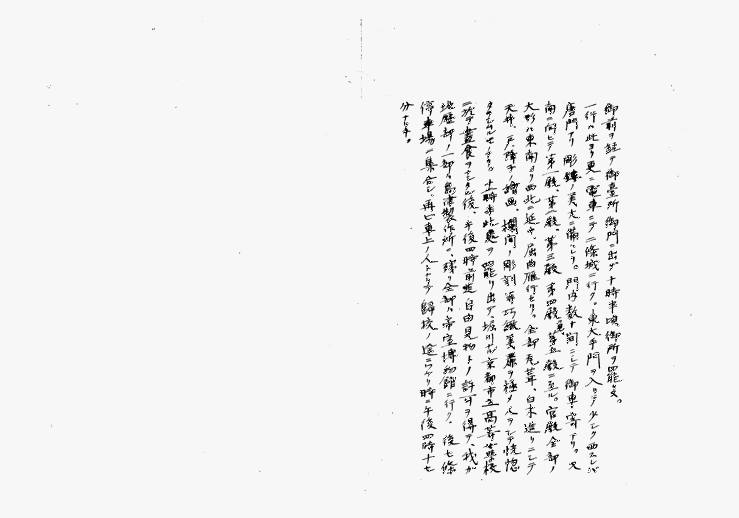 御前ヲ経テ御臺所御門ニ出デ十時半頃御所ヲ罷ル。
一行ハ此ヨリ更ニ電車ニテ二條城ニ行ク。東大手門ヲ入リテ少シク西スレバ
唐門アリ彫鏤ノ美大ニ備ハレリ。門内数十間ニシテ御車寄アリ。又
南ニ向ヒテ第一殿、第二殿、第三殿、第四殿、第五殿ニ至ル。宮殿全部ノ
大形ハ東南ヨリ西北ニ延ヒ、屈曲雁行セリ。全部瓦葺、白木造リニシテ
天井、戸障子ノ繪画、欄間ノ彫刻等巧緻美麗ヲ極メ人ヲシテ恍惚
タラシム。十一時半此處ヲ罷リ出デ、堀川ナル京都市立高等女学校
ニ於テ晝食ヲナシタル後、午後四時前迄自由見物ヨノ許可ヲ得テ、我ガ
地歴部ノ一部ハ島津製作所ニ、残リ全部ハ帝室博物館ニ行ク。後七條
停車場ニ集合シ、再ビ車上ノ人トナリテ歸校ノ途ニツケリ時ニ午後四時十七
分ナリキ。